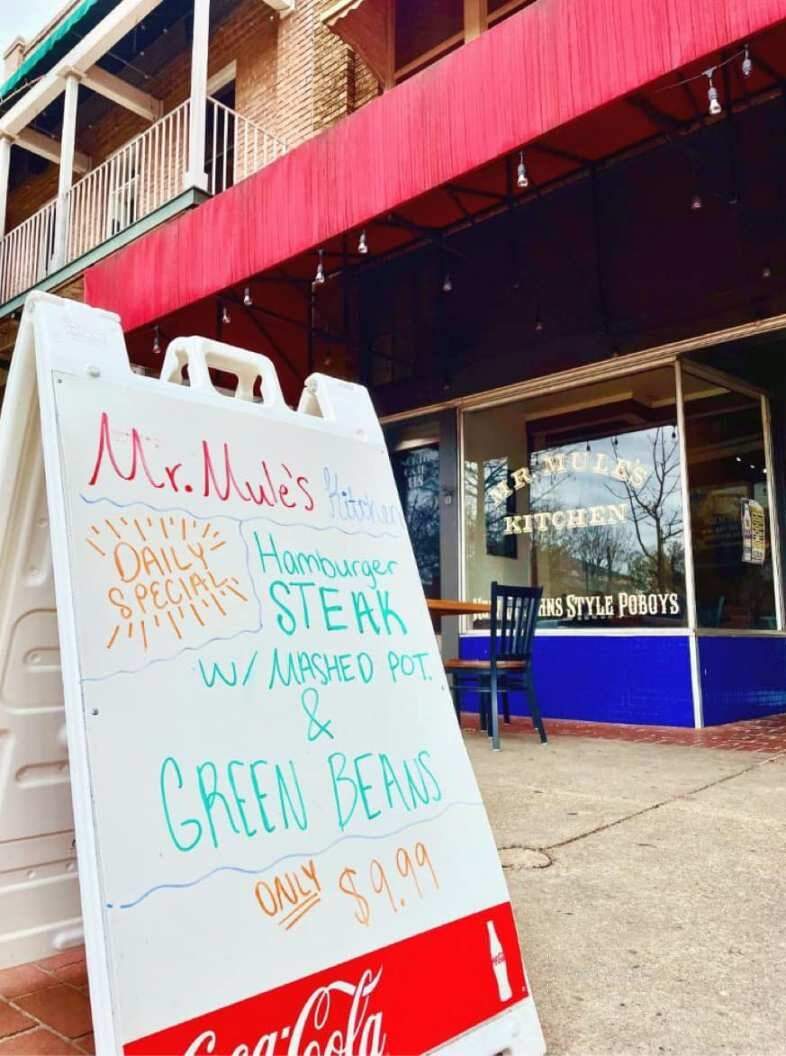 Mr. Mule's Kitchen
DAILY
SPECIAL
Hamburger
STEAK
W/ MASHED POT.
&
GREEN BEANS
ONLY $9.99
Coca-Cola
MR. MULE'S
KITCHEN
STYLE POBOYS